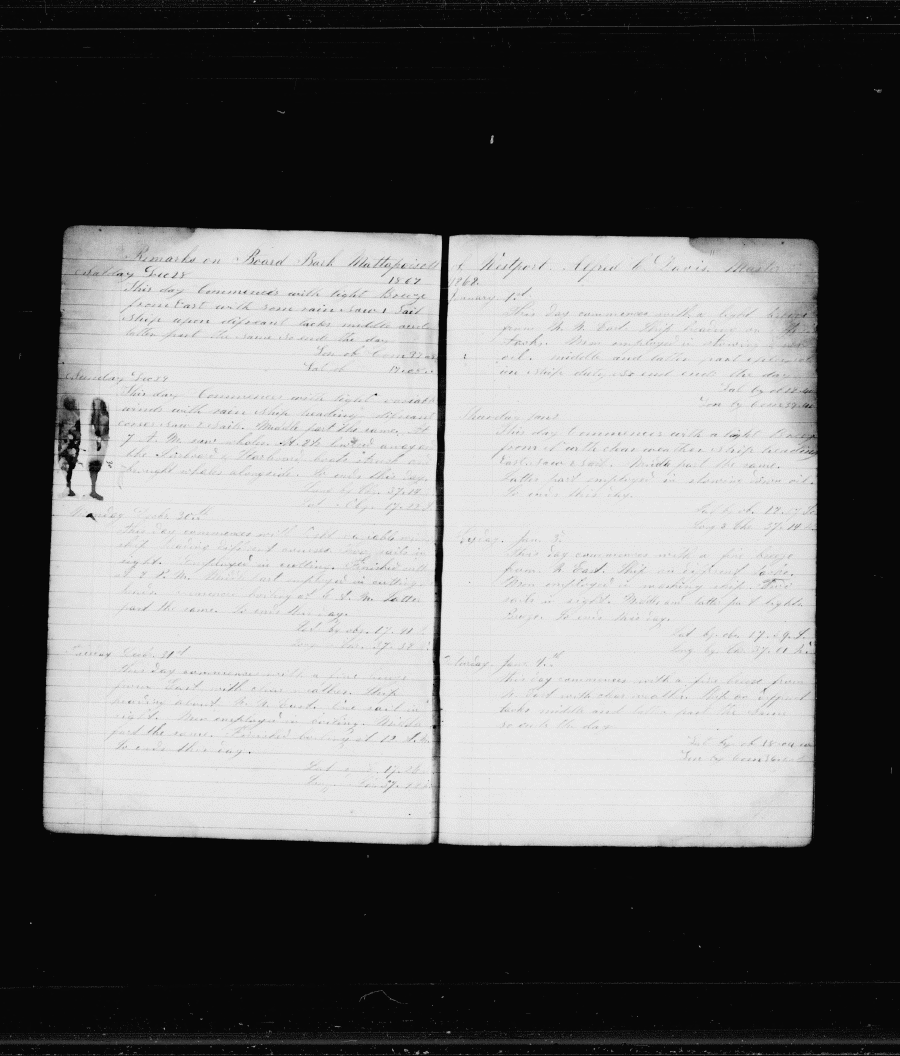 Remarks on Board Bark Mattapoisett
Saturday Dec 28 1867
This day Commences with light Breeze
from East with some rain Saw 1 Sail
Ship upon diferant tacks middle and
latter part the same so end the day
Lon ob Crom
Lat ob
Sunday Dec 29
This day Commences with light variable
winds with rain Ship heading diferant
corses Saw 2 Sails. Middle part the same. At
7 A. M. saw whales. At 8½ lowered away
the Starboard & Larboard boats struck and
brought whales alongside. So ends this day.
Long by Chr. 37.18
Lat by 17.22
Monday Dec. 30th
This day commences with light variable winds
ship laying different courses two sails in
sight. Employed in cutting. Finished cutting
at 2 P. M. Middle part employed in cutting
commence boiling at 6 P. M. latter
part the same. So ends this day.
Lat by obs. 17.41
Long by Chr. 37.32
Tuesday Dec. 31st
This day commences with a fine breeze
from East with clear weather. Ship
heading about N. N. East. One sail in
sight. Men employed in boiling. Middle
part the same. Finished boiling at 12
So ends this day.
Lat 17.26
Long 37.
of Westport. Alfred C. Davis Master
1868
January 1st
This day commences with a light breeze
from N. N. East. Ship heading on the
Tacks. Men employed in stowing
oil. middle and latter part employed
in ship duty so end ends the day
Lat by ob 18
Lon by Crom 37
Thursday Jan 2
This day Commences with a light breeze
from with clear weather Ship heading
East. Saw 2 Sail. Middle part the same.
Latter part employed in stowing down oil.
So ends this day.
Lat by ob. 17.17
Long by Chr. 37.19
Friday. Jan. 3.
This day commences with a fine breeze
from N. East. Ship on different tacks.
Men employed in washing ship. Two
sails in sight. Middle and latter part light
Breeze. So ends this day.
Lat by obs 17.29
Long by Chr 37.11
Saturday. Jan. 4th
This day commences with a fine breeze from
N. East with clear weather Ship on different
tacks middle and latter part the same
so ends the day
Lat by ob 18.04
Lon by Crom 36